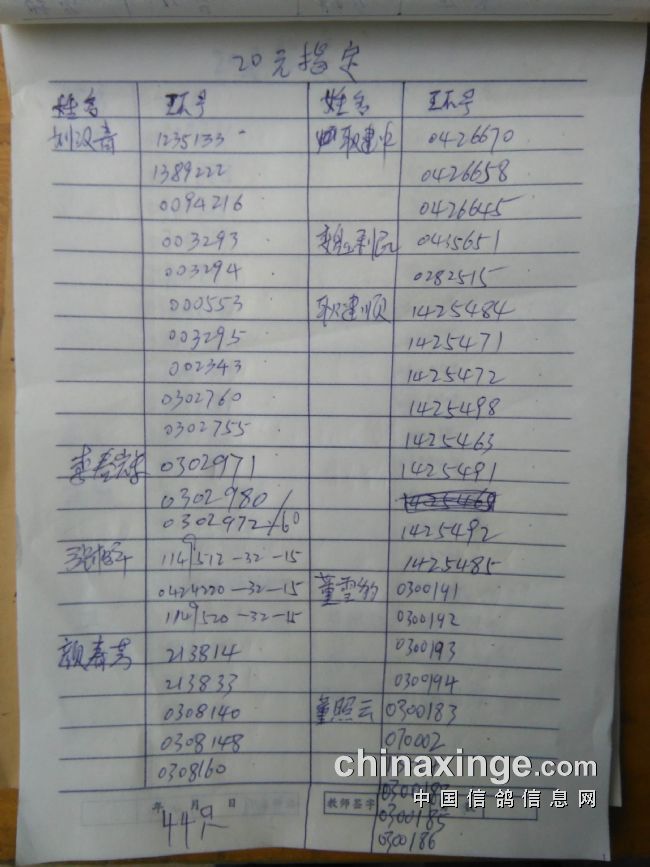 20元指定
姓名 环号 姓名 环号
刘汉青 1235133
1389222
0094216
003293
003294
000553
003295
002343
0302760
0302755
0302971
0302980
0302972 /60
1149512-32-15
0424220-32-15
1149520-32-15
颜春芳 213814
213833
0308140
0308148
0308160
耿建业 0426670
0426658
0426645
0435651
0282515
耿建顺 1425484
1425471
1425472
1425498
1425463
1425491
1425492
1425485
董雪豹 0300191
0300192
0300193
0300194
董照云 0300183
070002
0300185
0300186
年 月 日
教师签字
449
chinaxinge.com
中国信鸽信息网